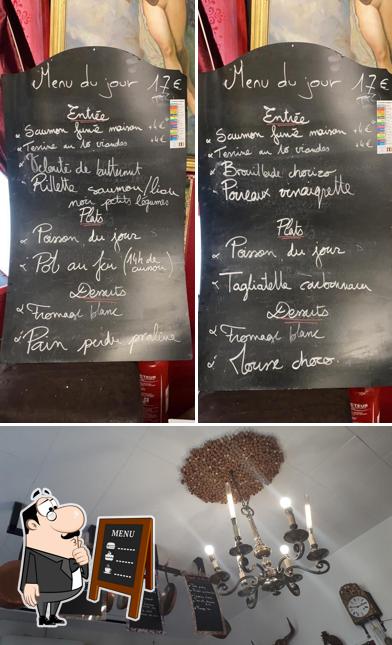 Menu du jour 17€
Entrée
Saumon fumé maison +4€
Terrine au 10 viandes +4€
Velouté de butternut
Rillette saumon/lieu
noir petits légumes
Plats
Poisson du jour
Pot au feu (14h de
cuisson)
Desserts
Fromage blanc
Pain perdu praliné
Menu du jour 17€
Entrée
Saumon fumé maison +4€
Terrine au 10 viandes +4€
Brouillade chorizo
Poireaux vinaigrette
Plats
Poisson du jour
Tagliatelle carbonara
Desserts
Fromage blanc
Mousse choco.
MENU